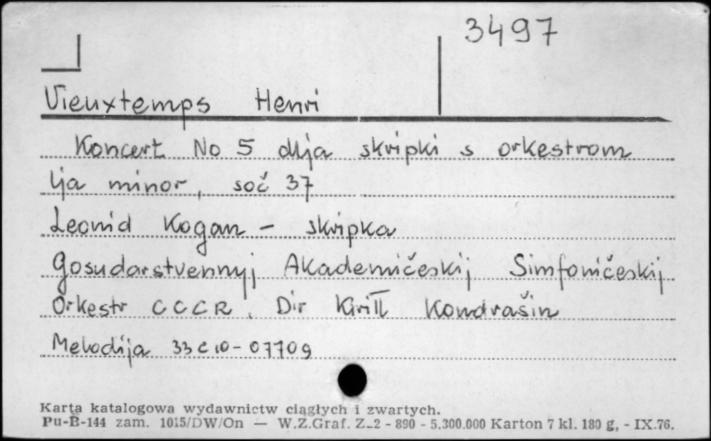 3497
Vieuxtemps Henri
Koncert No 5 dlja skripki s orkestrom
lja minor, soč 37
Leonid Kogan - skripka
Gosudarstvennyj Akademičeskij Simfoničeskij
Orkestr CCCR, Dir Kirill Kondrašin
Melodija 33 c 10-07709
Karta katalogowa wydawnictw ciągłych i zwartych.
Pu-B-144 zam. 1015/DW/On — W.Z.Graf. Z-2 - 890 - 5.300.000 Karton 7 kl. 180 g, - IX.76.